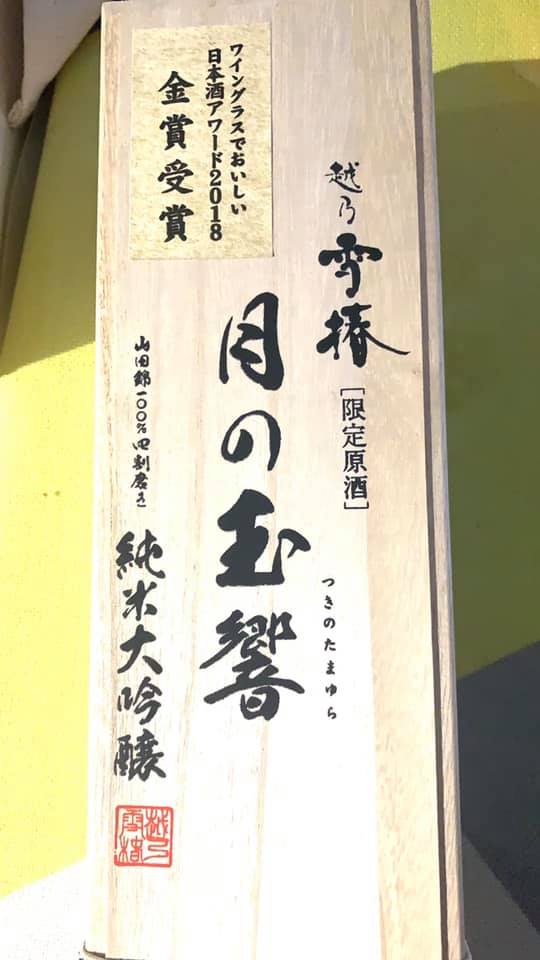 ワイングラスでおいしい
日本酒アワード2018
金賞受賞
越乃
雪椿
[限定原酒]
月の玉響
つきのたまゆら
山田錦一〇〇%四割磨き
純米大吟醸
越乃
雪椿